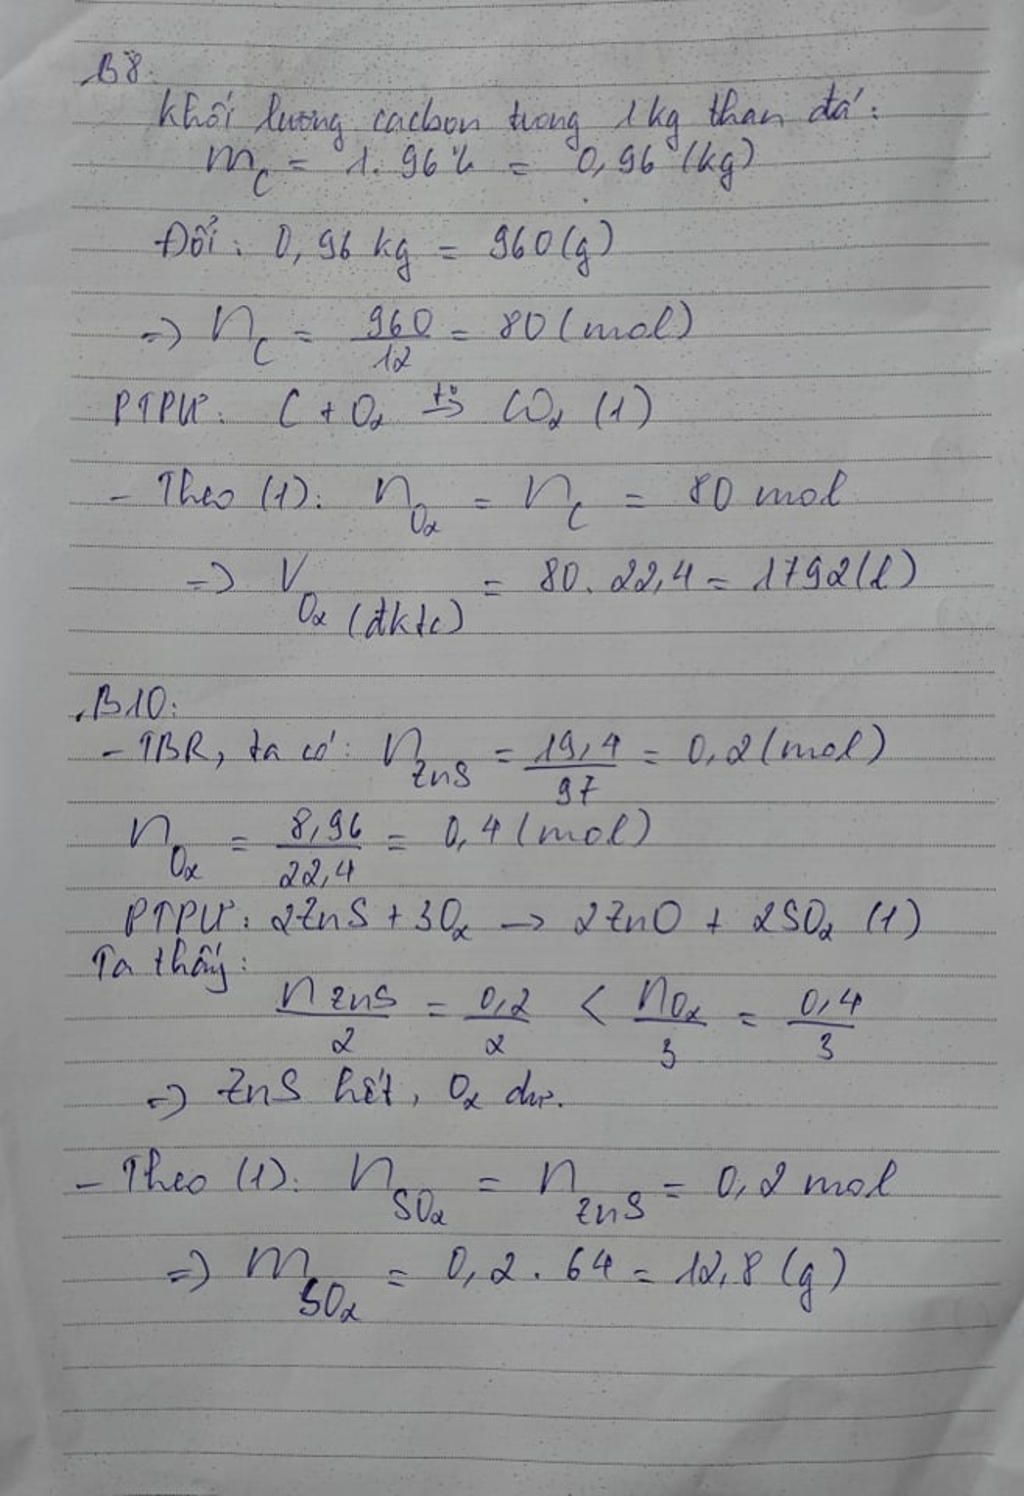 B8:
Khối lượng cacbon trong 1kg than đá:
m_C = 1.96% = 0,96 (kg)
Đổi: 0,96 kg = 960(g)
=> n_C = 960/12 = 80 (mol)
PTPƯ: C + O₂ t°→ CO₂ (1)
- Theo (1): n_O₂ = n_C = 80 mol
=> V_O₂ (đktc) = 80.22,4 = 1792(l)
B10:
- TBR, ta có: n_ZnS = 19,4/97 = 0,2 (mol)
n_O₂ = 8,96/22,4 = 0,4 (mol)
PTPƯ: 2ZnS + 3O₂ -> 2ZnO + 2SO₂ (1)
Ta thấy:
n ZnS/2 = 0,2/2 < n O₂/3 = 0,4/3
=> ZnS hết, O₂ dư.
- Theo (1): n_SO₂ = n_ZnS = 0,2 mol
=> m_SO₂ = 0,2.64 = 12,8 (g)